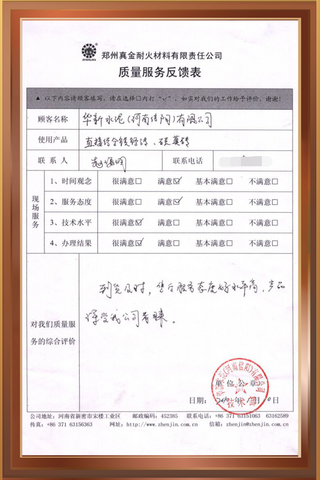 郑州真金耐火材料有限责任公司
质量服务反馈表
▲以下内容请顾客填写,请在选择□内打“✓”,如实对我们的工作给予评价,谢谢!
顾客名称 华新水泥(河南信阳)有限公司
使用产品 直接结合镁铬砖、硅莫砖
联系人 联系电话
现场服务
1、时间观念 很满意□ 满意☑ 基本满意□ 不满意□
2、服务态度 很满意□ 满意☑ 基本满意□ 不满意□
3、技术水平 很满意☑ 满意□ 基本满意□ 不满意□
4、办理结果 很满意□ 满意☑ 基本满意□ 不满意□
对我们质量服务的综合评价
到货及时,售后服务态度好水平高,产品
深受我公司青睐。
单位公章
日期: 年 月 日
公司地址:河南省新密市宋楼工业区 邮政编码:452385 公司服务热线:+86 371 63151063 63162589
传真:+86 371 63156363 网址:http://www.zhenjin.com.cn 信箱:zhenjin@zhenjin.com.cn